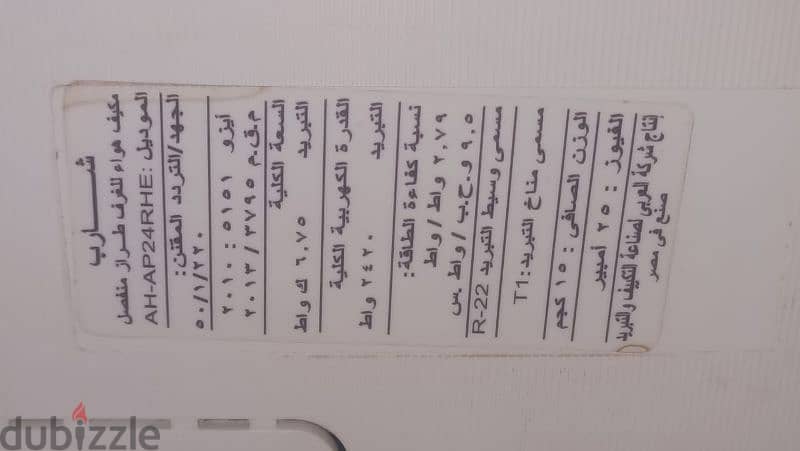 شـــارب
مكيف هواء للغرف طـراز منفصل
الموديل :AH-AP24RHE
الجهد/التردد المقنن:
٥٠/١/٢٢٠
أيزو ٥١٥١ : ٢٠١٠
م.ق.م ٣٧٩٥ / ٢٠١٣
السعة الكلية
التبريد ٦,٧٥ ك واط
القدرة الكهربية الكلية
التبريد ٢٤٢٠ واط
نسبة كفاءة الطاقة :
٢,٧٩ واط / واط
٩,٥ و.ح.ب / واط .س
مسمى وسيط التبريد R-22
مسمى مناخ التبريد: T1
الوزن الصافى : ١٥ كجم
الفيوز : ٢٥ أمبير
إنتاج شركة العربى لصناعة التكييف والتبريد
صنع فى مصر
dubizzle